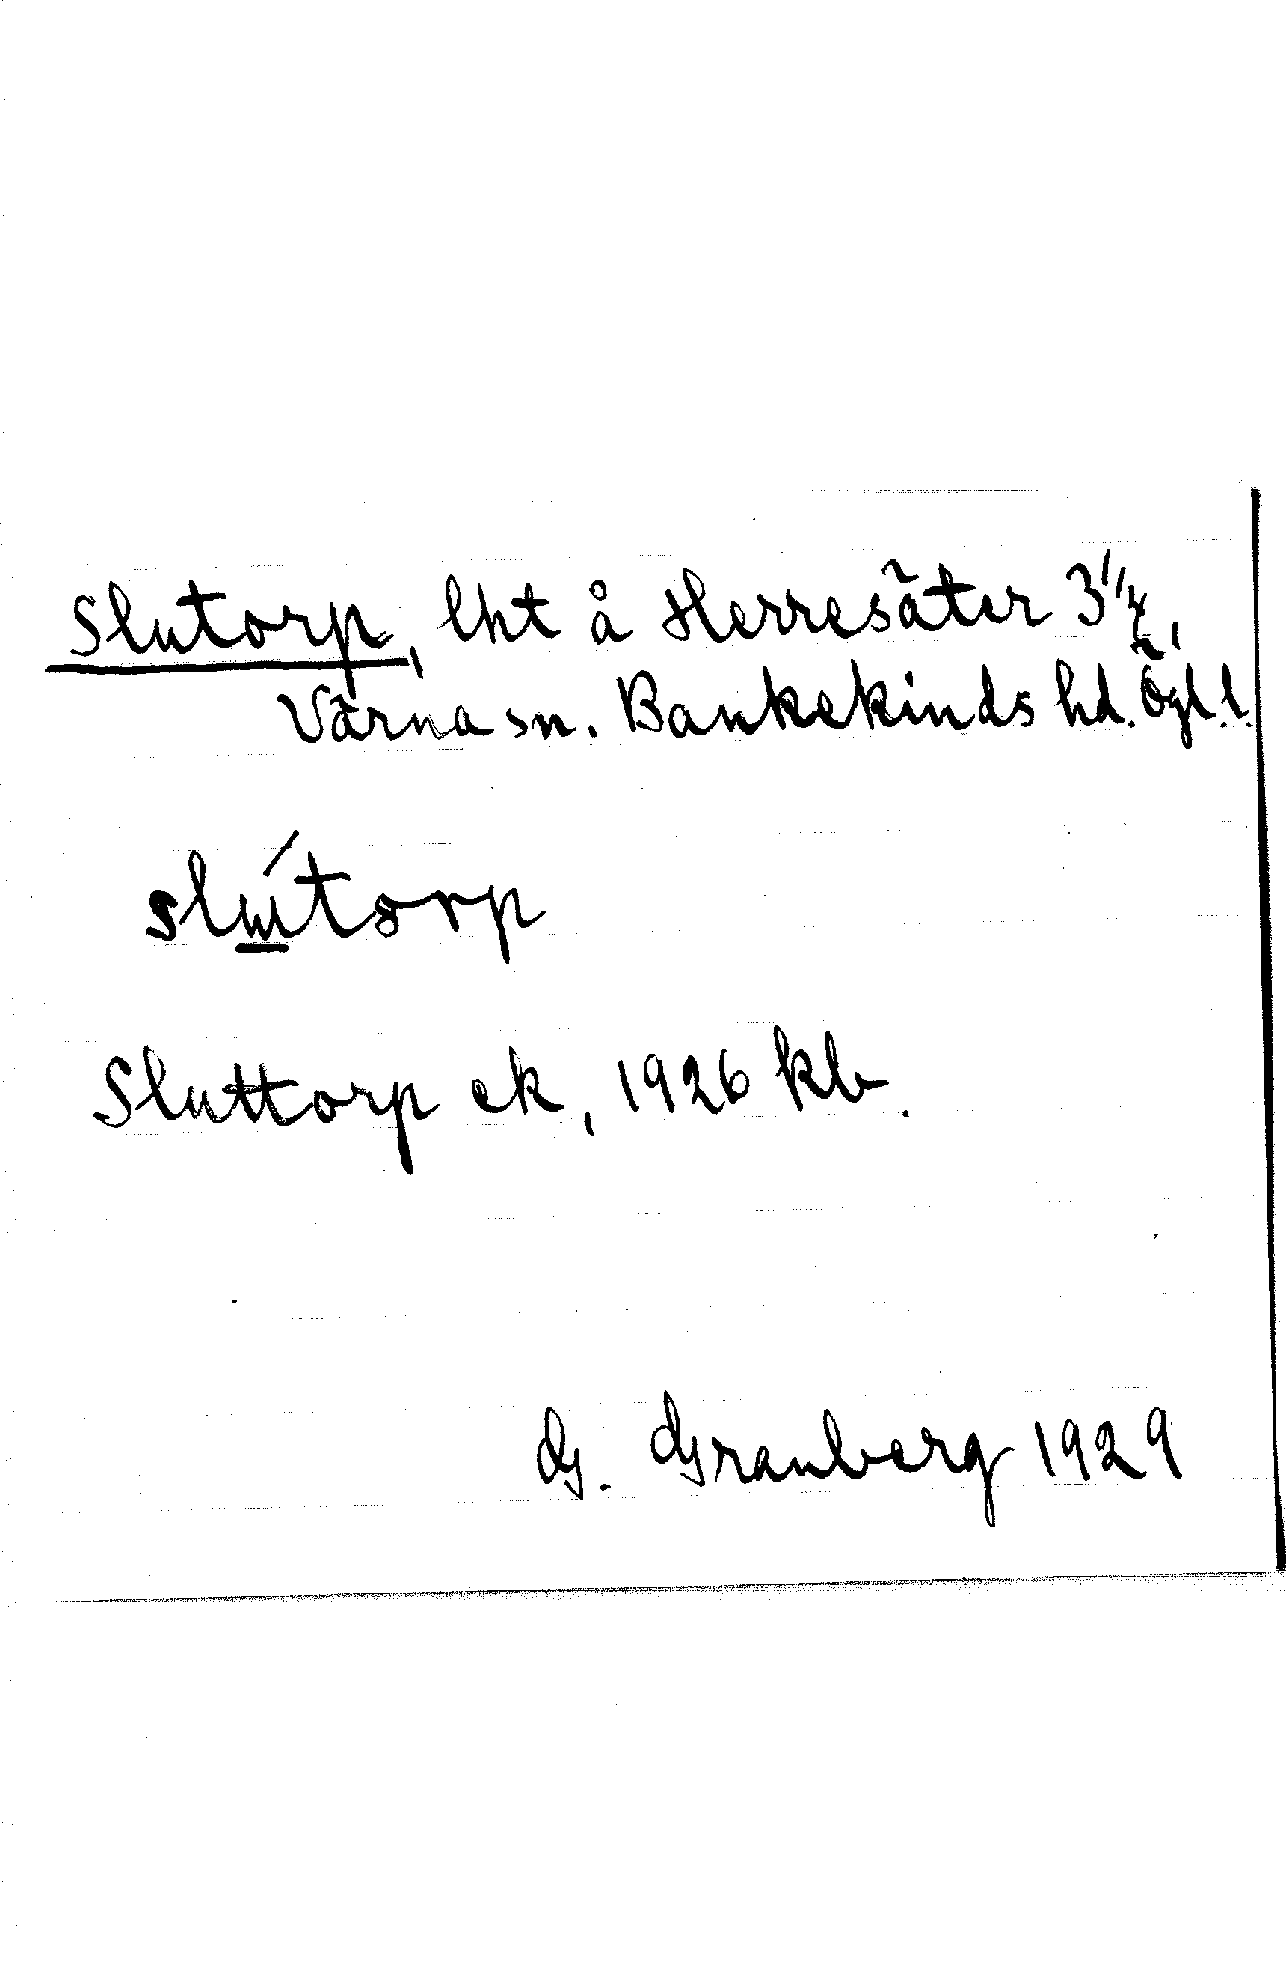 Slutorp, lht å Herresäter 3 1/4,
Värna sn. Bankekinds hd. Ögl. l.
slu̲ítorp
Sluttorp ek, 1926 kb.
G. Granberg 1929